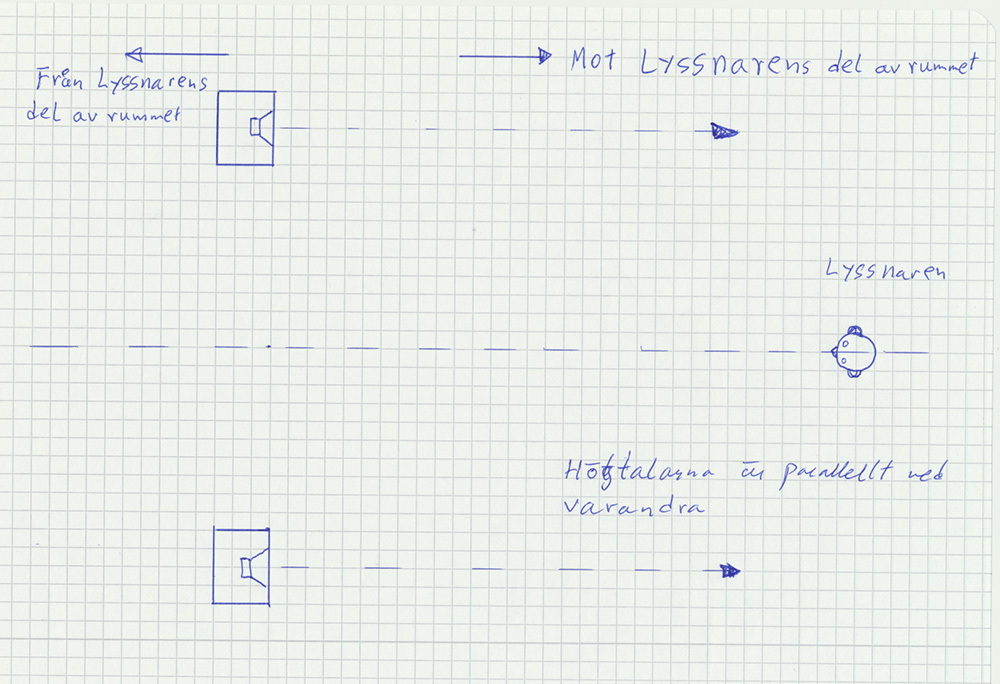 Från Lyssnarens
del av rummet
Mot Lyssnarens del av rummet
Lyssnaren
Högtalarna är parallellt med
varandra